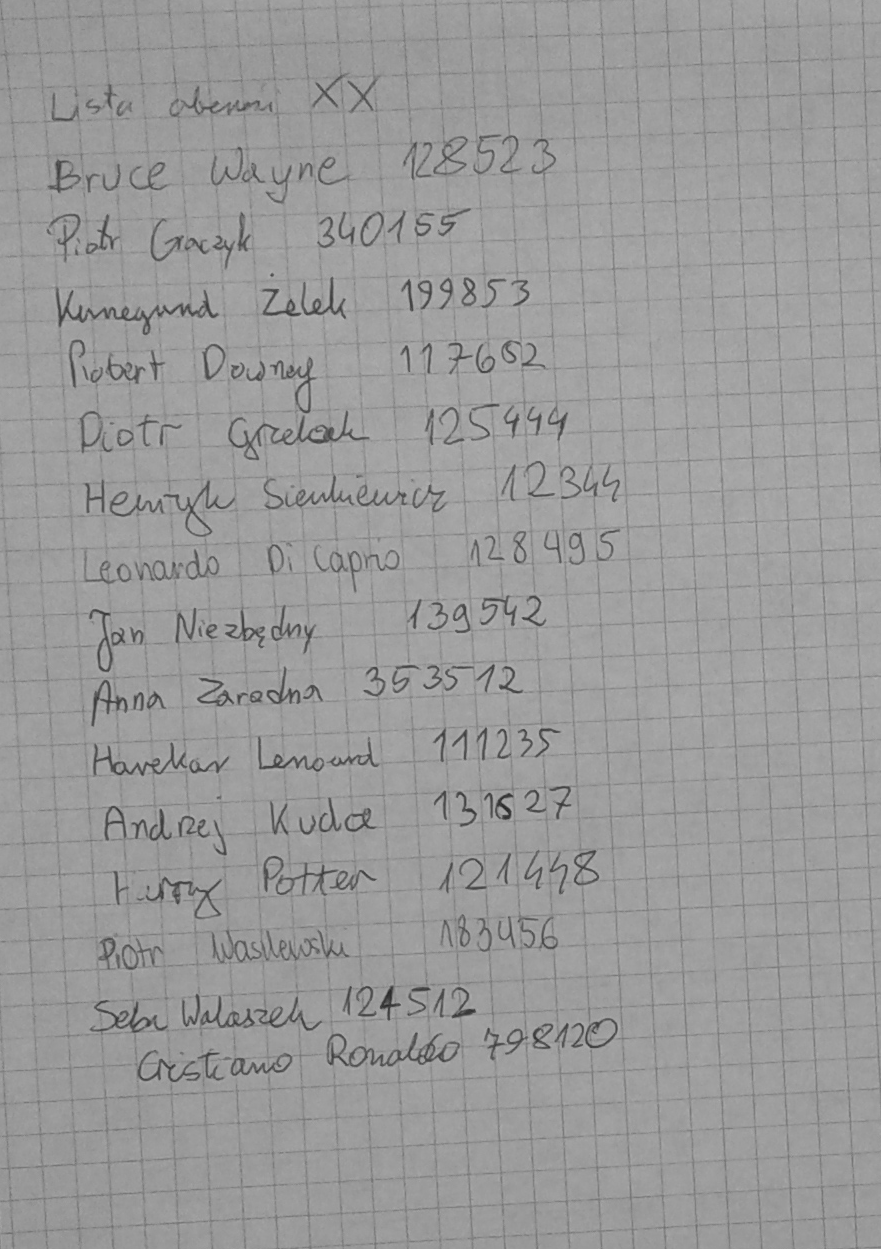 Lista obecności XX
Bruce Wayne 128523
Piotr Graczyk 340155
Kunegund Żelek 199853
Robert Downey 117652
Piotr Grzelak 125444
Henryk Sienkiewicz 12344
Leonardo Di Caprio 128495
Jan Niezbędny 139542
Anna Zaradna 353512
Havekar Lenoard 111235
Andrzej Kudca 131627
Harry Potter 121448
Piotr Wasilewski 183456
Seba Walaszek 124512
Cristiano Ronaldo 798120